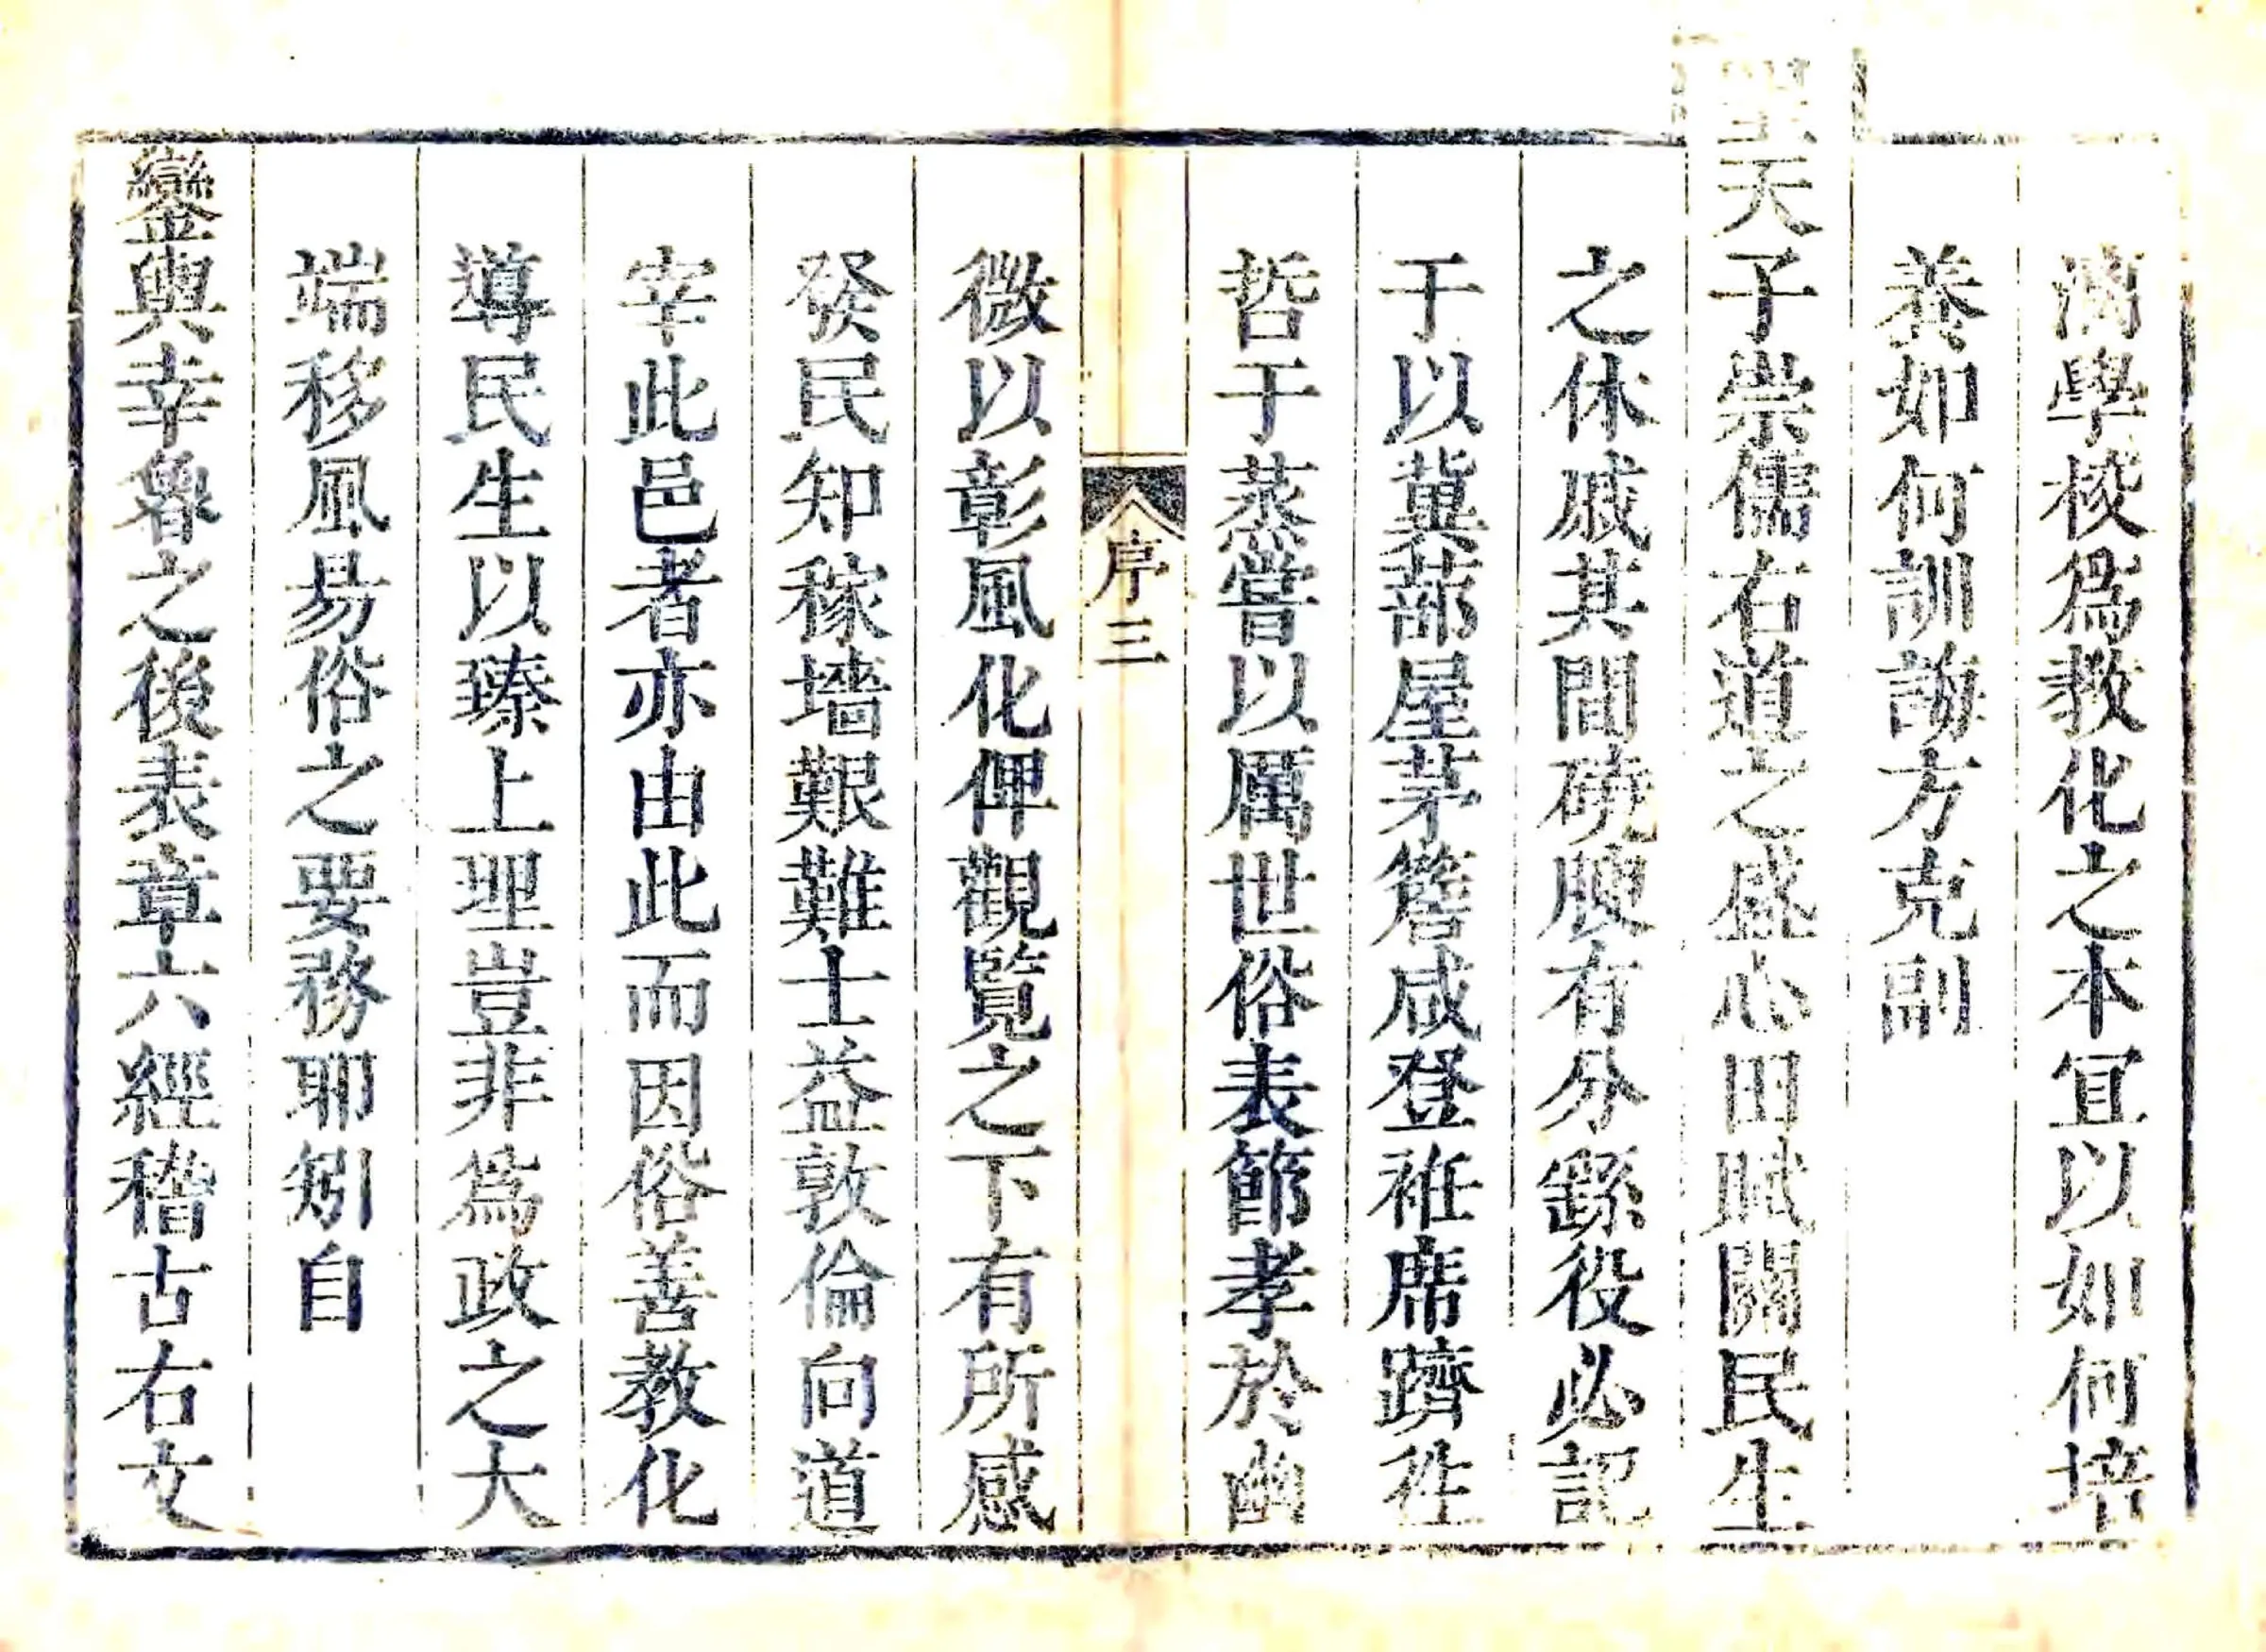 漓學校爲教化之本冝以如何培
養如何訓誨方克副
聖天子崇儒右道之盛心田賦關民生
之休戚其間磽腴有分繇役必記
于以冀蔀屋茅簷咸登袵席躋徃
哲于蒸嘗以厲世俗表節孝於幽
序三
微以彰風化俾觀覽之下有所感
發民知稼墻艱難士益敦倫向道
宰此邑者亦由此而因俗善教化
導民生以臻上理豈非爲政之大
端移風易俗之要務耶矧自
鑾輿幸魯之後表章六經稽古右文